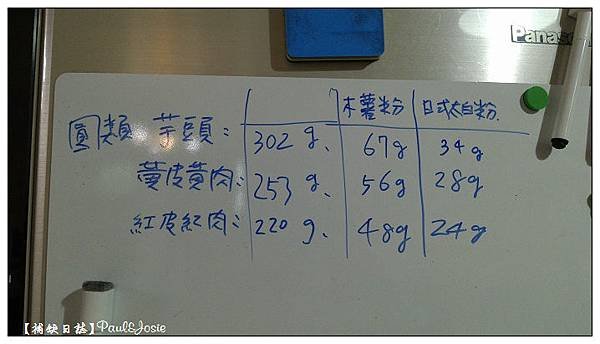 Panaso
木薯粉 日式太白粉.
圓類 芋頭: 302g、 67g 34g
黃皮黃肉: 253g、 56g 28g
紅皮紅肉: 220g、 48g 24g
【補缺日誌】Paul&Josie